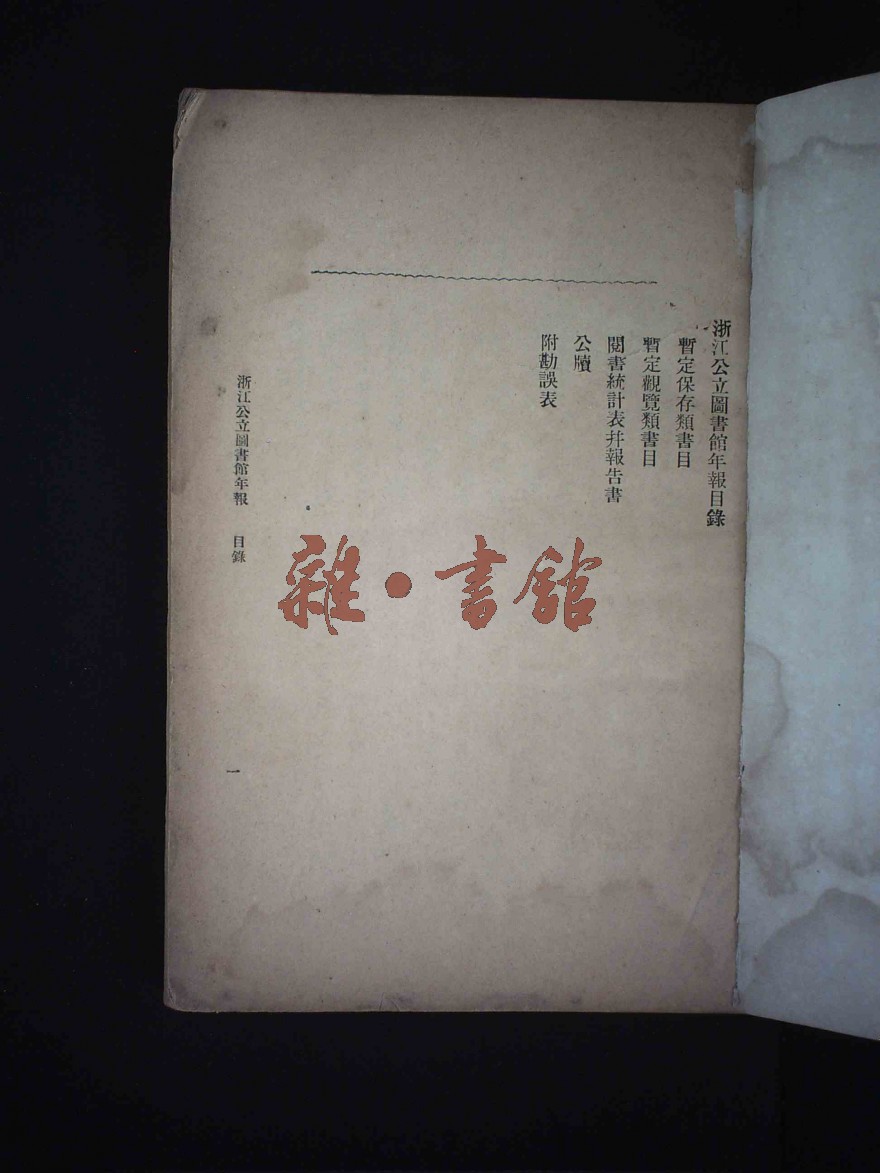 浙江公立圖書館年報目錄
暫定保存類書目
暫定觀覽類書目
閱書統計表幷報告書
公牘
附勘誤表
浙江公立圖書館年報 目錄
一
雜·書館